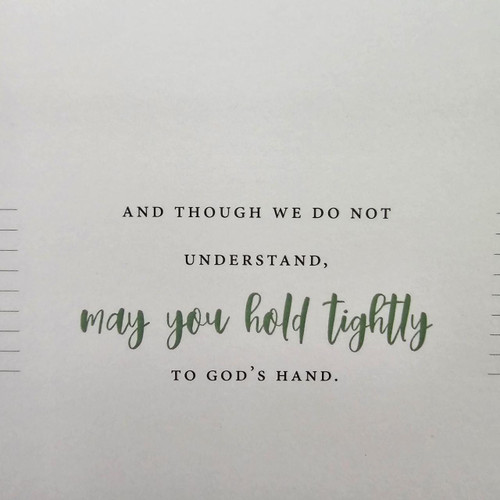 AND THOUGH WE DO NOT
UNDERSTAND,
may you hold tightly
TO GOD'S HAND.